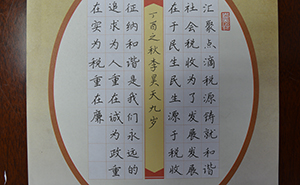 汇聚点滴税源铸就和谐
社会税收为了发展发展
在于民生民生源于税收
丁酉之秋李昊天九岁
征纳和谐是我们永远的
追求为人重在诚为政重
在实为税重在廉